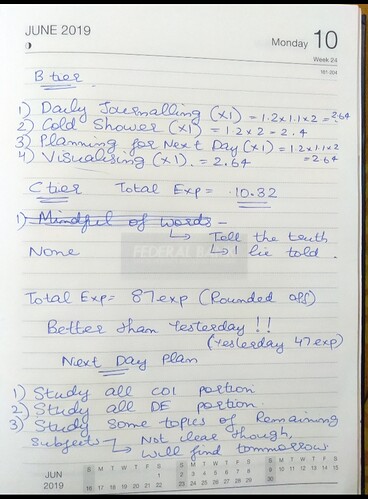 JUNE 2019
Monday 10
Week 24
161-204
B tier
1) Daily Journalling (x1) = 1.2x1.1x2 = 2.64
2) Cold Shower (x1) = 1.2x2 = 2.4
3) Planning for Next Day (x1) = 1.2x1.1x2
= 2.64
4) Visualising (x1). = 2.64
C tier Total Exp = 10.32
1) Mindful of words -
↳ Tell the truth
None ↳ 1 lie told.
FEDERAL BANK
Total Exp = 87 exp (Rounded off)
Better than Yesterday !!
(Yesterday 47 exp)
Next Day Plan
1) Study all COI portion
2) Study all DE portion
3) Study some topics of Remaining
Subjects → Not clear though,
will find tommorrow
JUN
2019
S M T W T F S S M T W T F S S M T W T F S
16 17 18 19 20 21 22 23 24 25 26 27 28 29 30